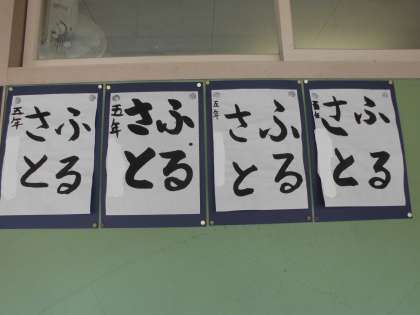 ふる
さと
五年
ふる
さと
五年
ふる
さと
五年
ふる
さと